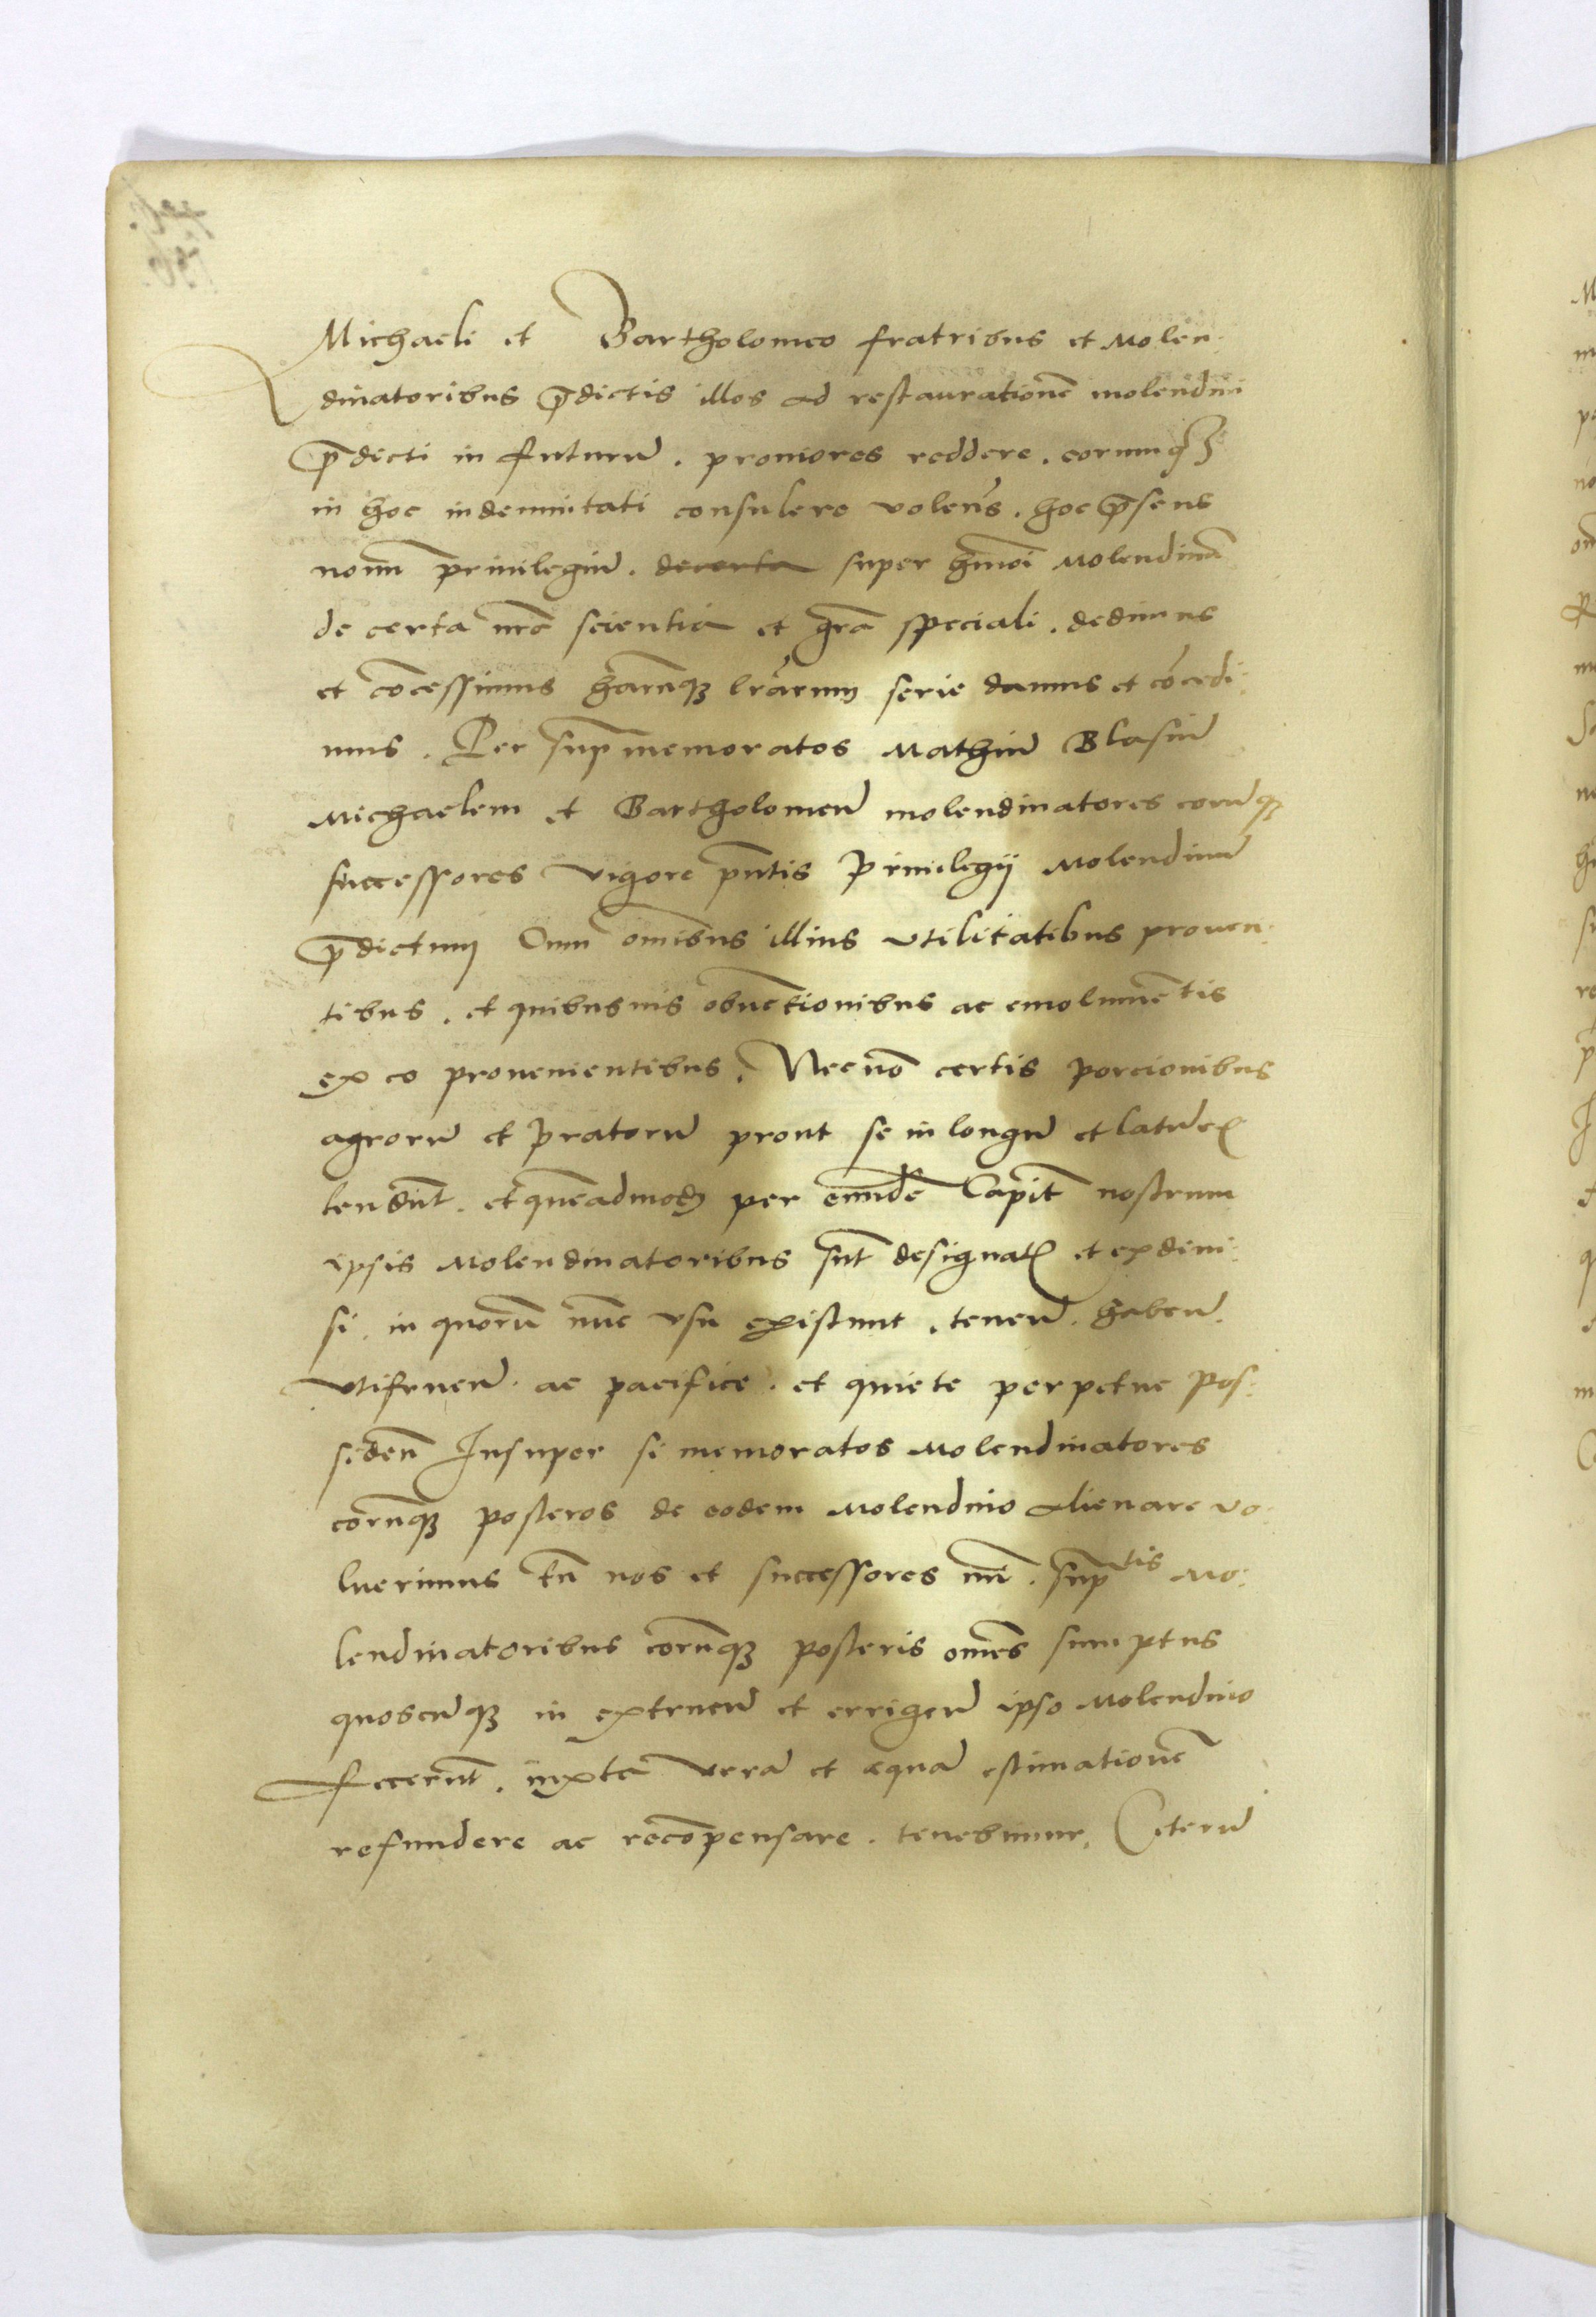 Michaeli et Bartholomeo fratribus et Molen:
dinatoribus p̄dictis illos ad restaurationē molendini
p̄dicti in futurū. proniores reddere. eorumq3
in hoc indemnitati consulere volen̄s. hoc p̄sens
nouū priuilegiū. de certa super hmōi Molendinū
de certa nrā scientia et grā speciali. dedimus
et cōcessimus harūq3 lrārum serie damus et cōcedi:
mus. Per supmemoratos Mathiā Blasiū
Michaelem et Bartholomeū molendinatores eorūq3
successores vigore pn̄tis Priuilegij Molendinū
p̄dictum Cum om̄ibus illius vtilitatibus prouen:
tibus. et quibusuis obuētionibus ac emolumētis
ex eo prouenientibus. Necnō certis porcionibus
agrorū et Pratorū prout se in longū et latū ex
tendūt. et quēadmodū per eundē Capit̄ nostrum
ipsis Molendinatoribus sūt designat et exdiui:
si. in quorū nūc vsu existunt. tenen̄. haben̄.
vtifruen̄. ac pacifice. et quiete perpetue Pos:
siden̄ Insuper si memoratos Molendinatores
eorūq3 posteros de eodem Molendino alienare vo:
luerimus tūc nos et successores nrī. sup̄tis Mo:
lendinatoribus eorūq3 posteris om̄es sumptus
quoscūq3 in extruen̄ et errigen̄ ipso Molendino
fecerūt. iuxta verā et equā estimationē
refundere ac recōpensare. tenebimur. Ceterū